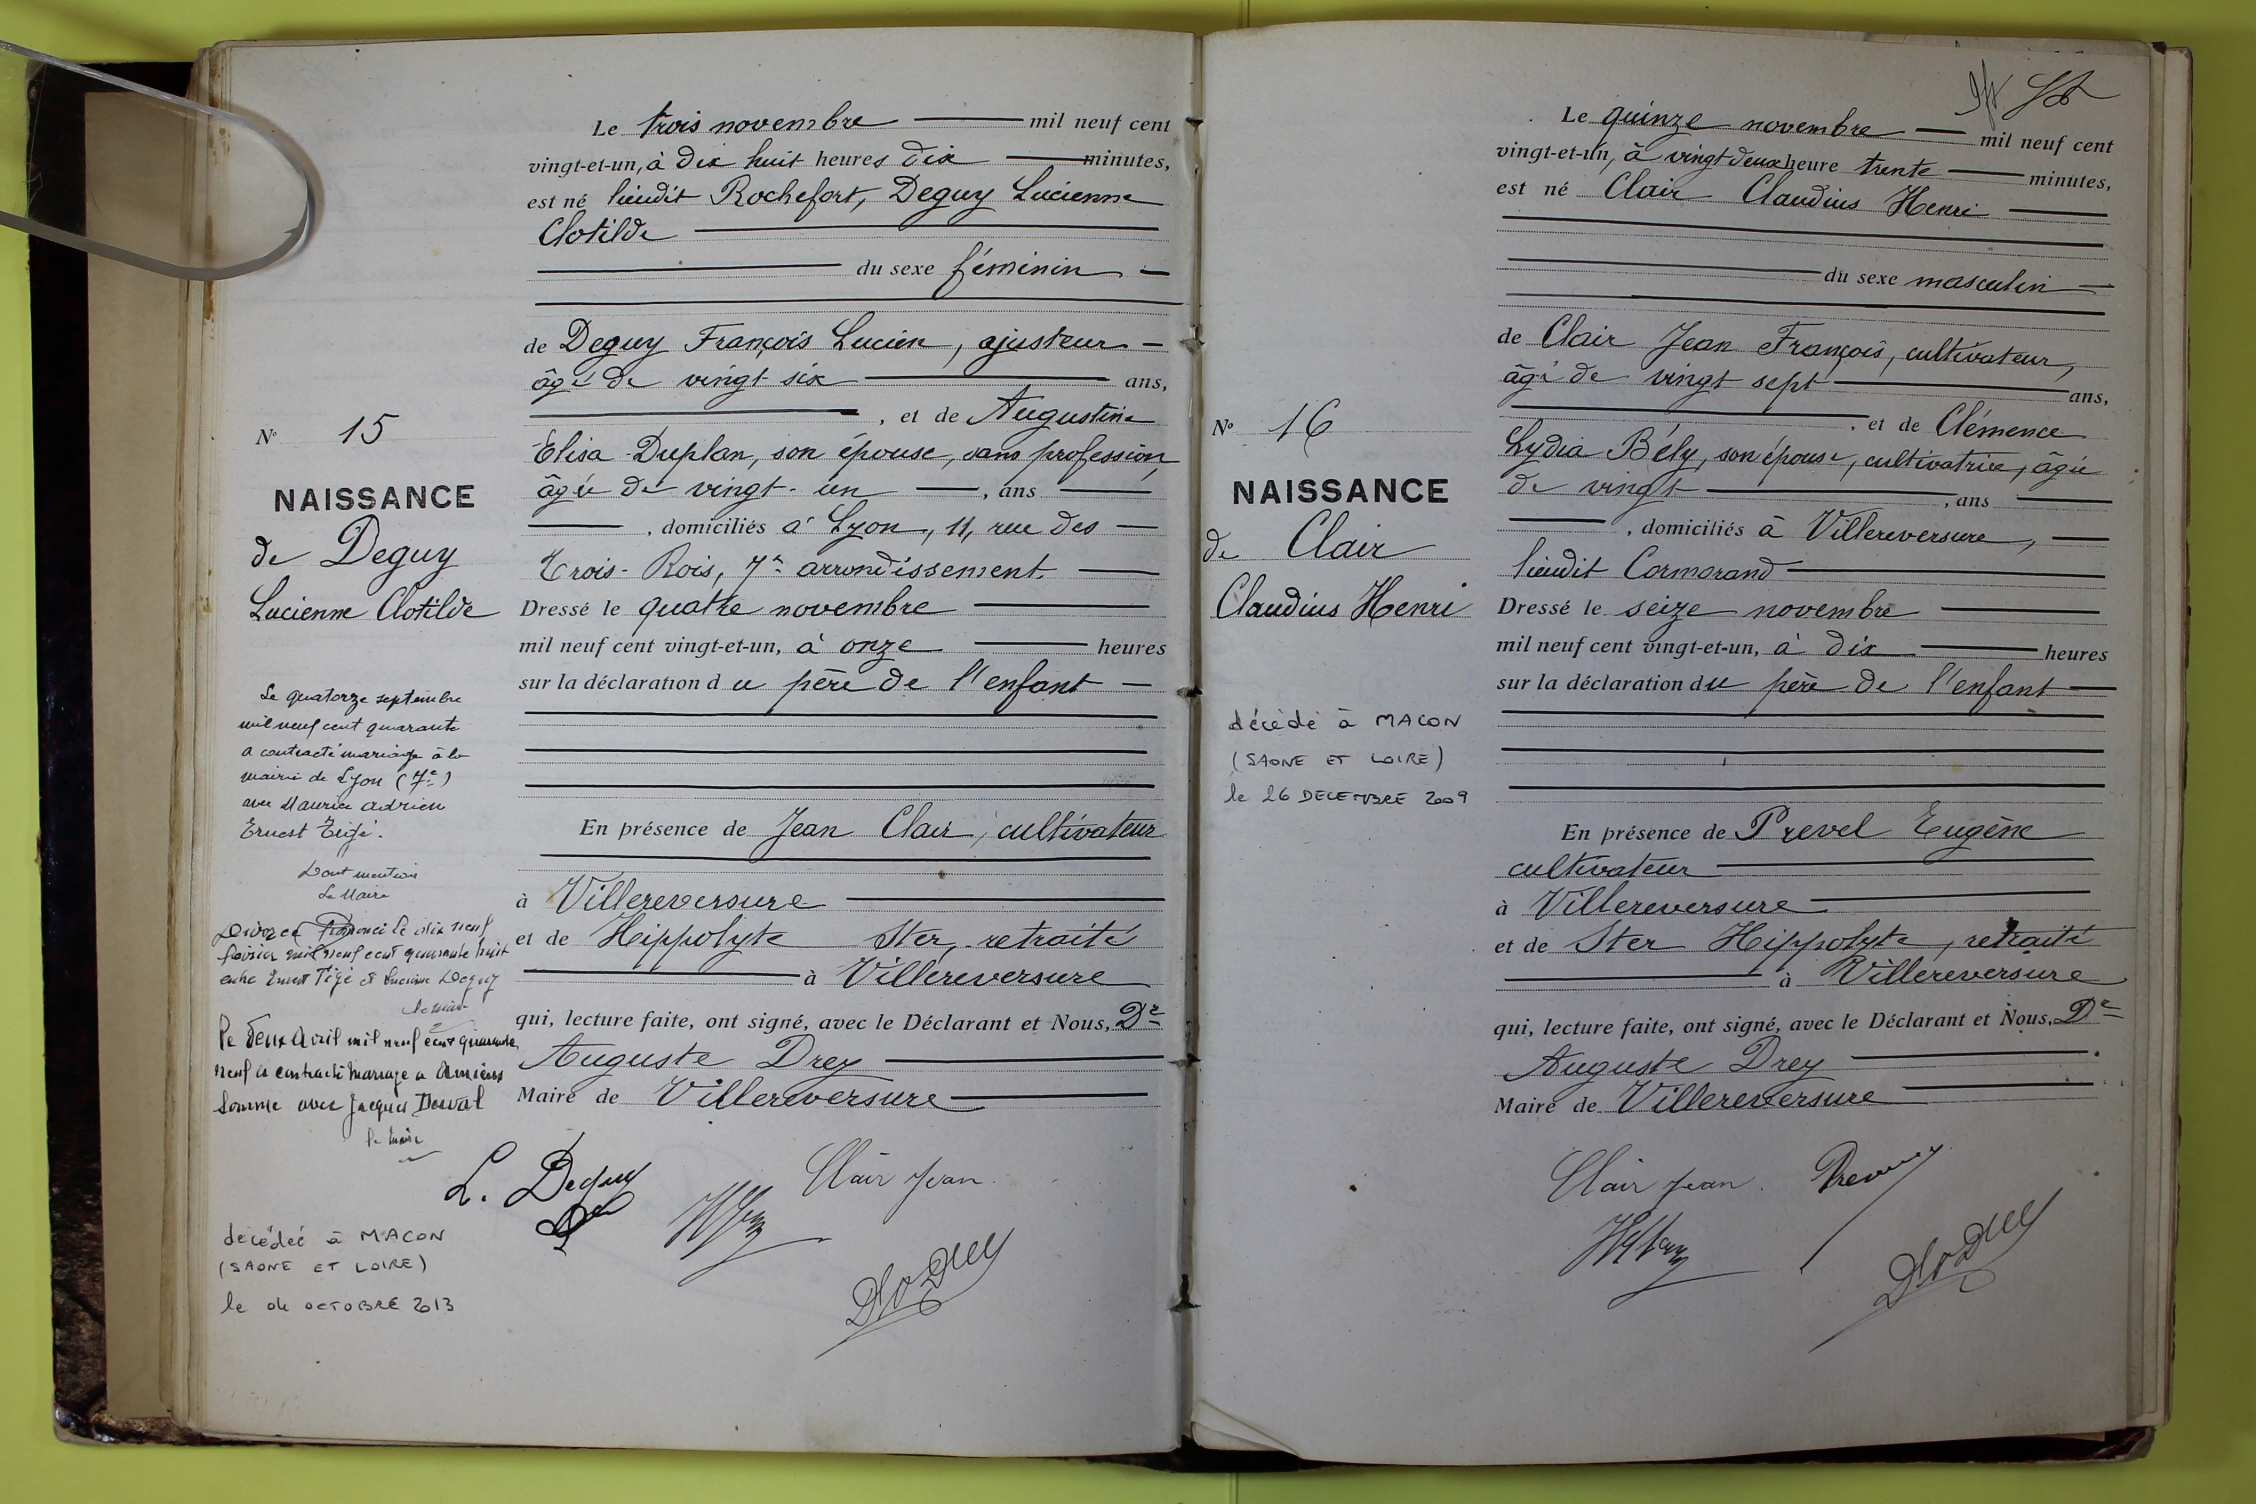 Le trois novembre mil neuf cent
vingt-et-un, à dix huit heures dix minutes,
est né lieudit Rochefort, Deguy Lucienne
Clotilde
du sexe féminin
de Deguy François Lucien, ajusteur
âgé de vingt six ans,
, et de Augustine
Elisa Duplan, son épouse, sans profession,
âgée de vingt-un , ans
, domiciliés à Lyon, 11, rue des
Trois-Rois, 7e arrondissement.
Dressé le quatre novembre
mil neuf cent vingt-et-un, à onze heures
sur la déclaration du père de l'enfant
En présence de Jean Clair, cultivateur
à Villereversure
et de Hippolyte Ster, retraité
à Villereversure
qui, lecture faite, ont signé, avec le Déclarant et Nous, Dr
Auguste Drey
Maire de Villereversure
L. Deguy
Clair Jean
No 15
NAISSANCE
de Deguy
Lucienne Clotilde
Le quatorze septembre
mil neuf cent quarante
a contracté mariage à la
mairie de Lyon (7e)
avec Maurice Adrien
Ernest
Dont mention
Le Maire
Divorce Prononcé le dix neuf
février mil neuf cent quarante huit
entre Ernest et Lucienne Deguy
le maire
le deux Avril mil neuf cent quarante
neuf a contracté mariage a Amiens
Somme avec Jacques
le maire
décédée à MACON
(SAONE ET LOIRE)
le 04 OCTOBRE 2013
Le quinze novembre mil neuf cent
vingt-et-un, à vingt deux heure trente minutes,
est né Clair Claudius Henri
du sexe masculin
de Clair Jean François, cultivateur,
âgé de vingt sept ans,
, et de Clémence
Lydia Bély, son épouse, cultivatrice, âgée
de vingt , ans
, domiciliés à Villereversure,
lieudit Cormorand
Dressé le seize novembre
mil neuf cent vingt-et-un, à dix heures
sur la déclaration du père de l'enfant
En présence de Prevel Eugène
cultivateur
à Villereversure
et de Ster Hippolyte, retraité
à Villereversure
qui, lecture faite, ont signé, avec le Déclarant et Nous, Dr
Auguste Drey
Maire de Villereversure
Clair Jean
No 16
NAISSANCE
de Clair
Claudius Henri
décédé à MACON
(SAONE ET LOIRE)
le 26 DECEMBRE 2009